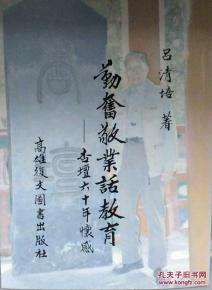 呂清培 著
勤奮敬業話教育
——杏壇六十年懷感
高雄復文圖書出版社